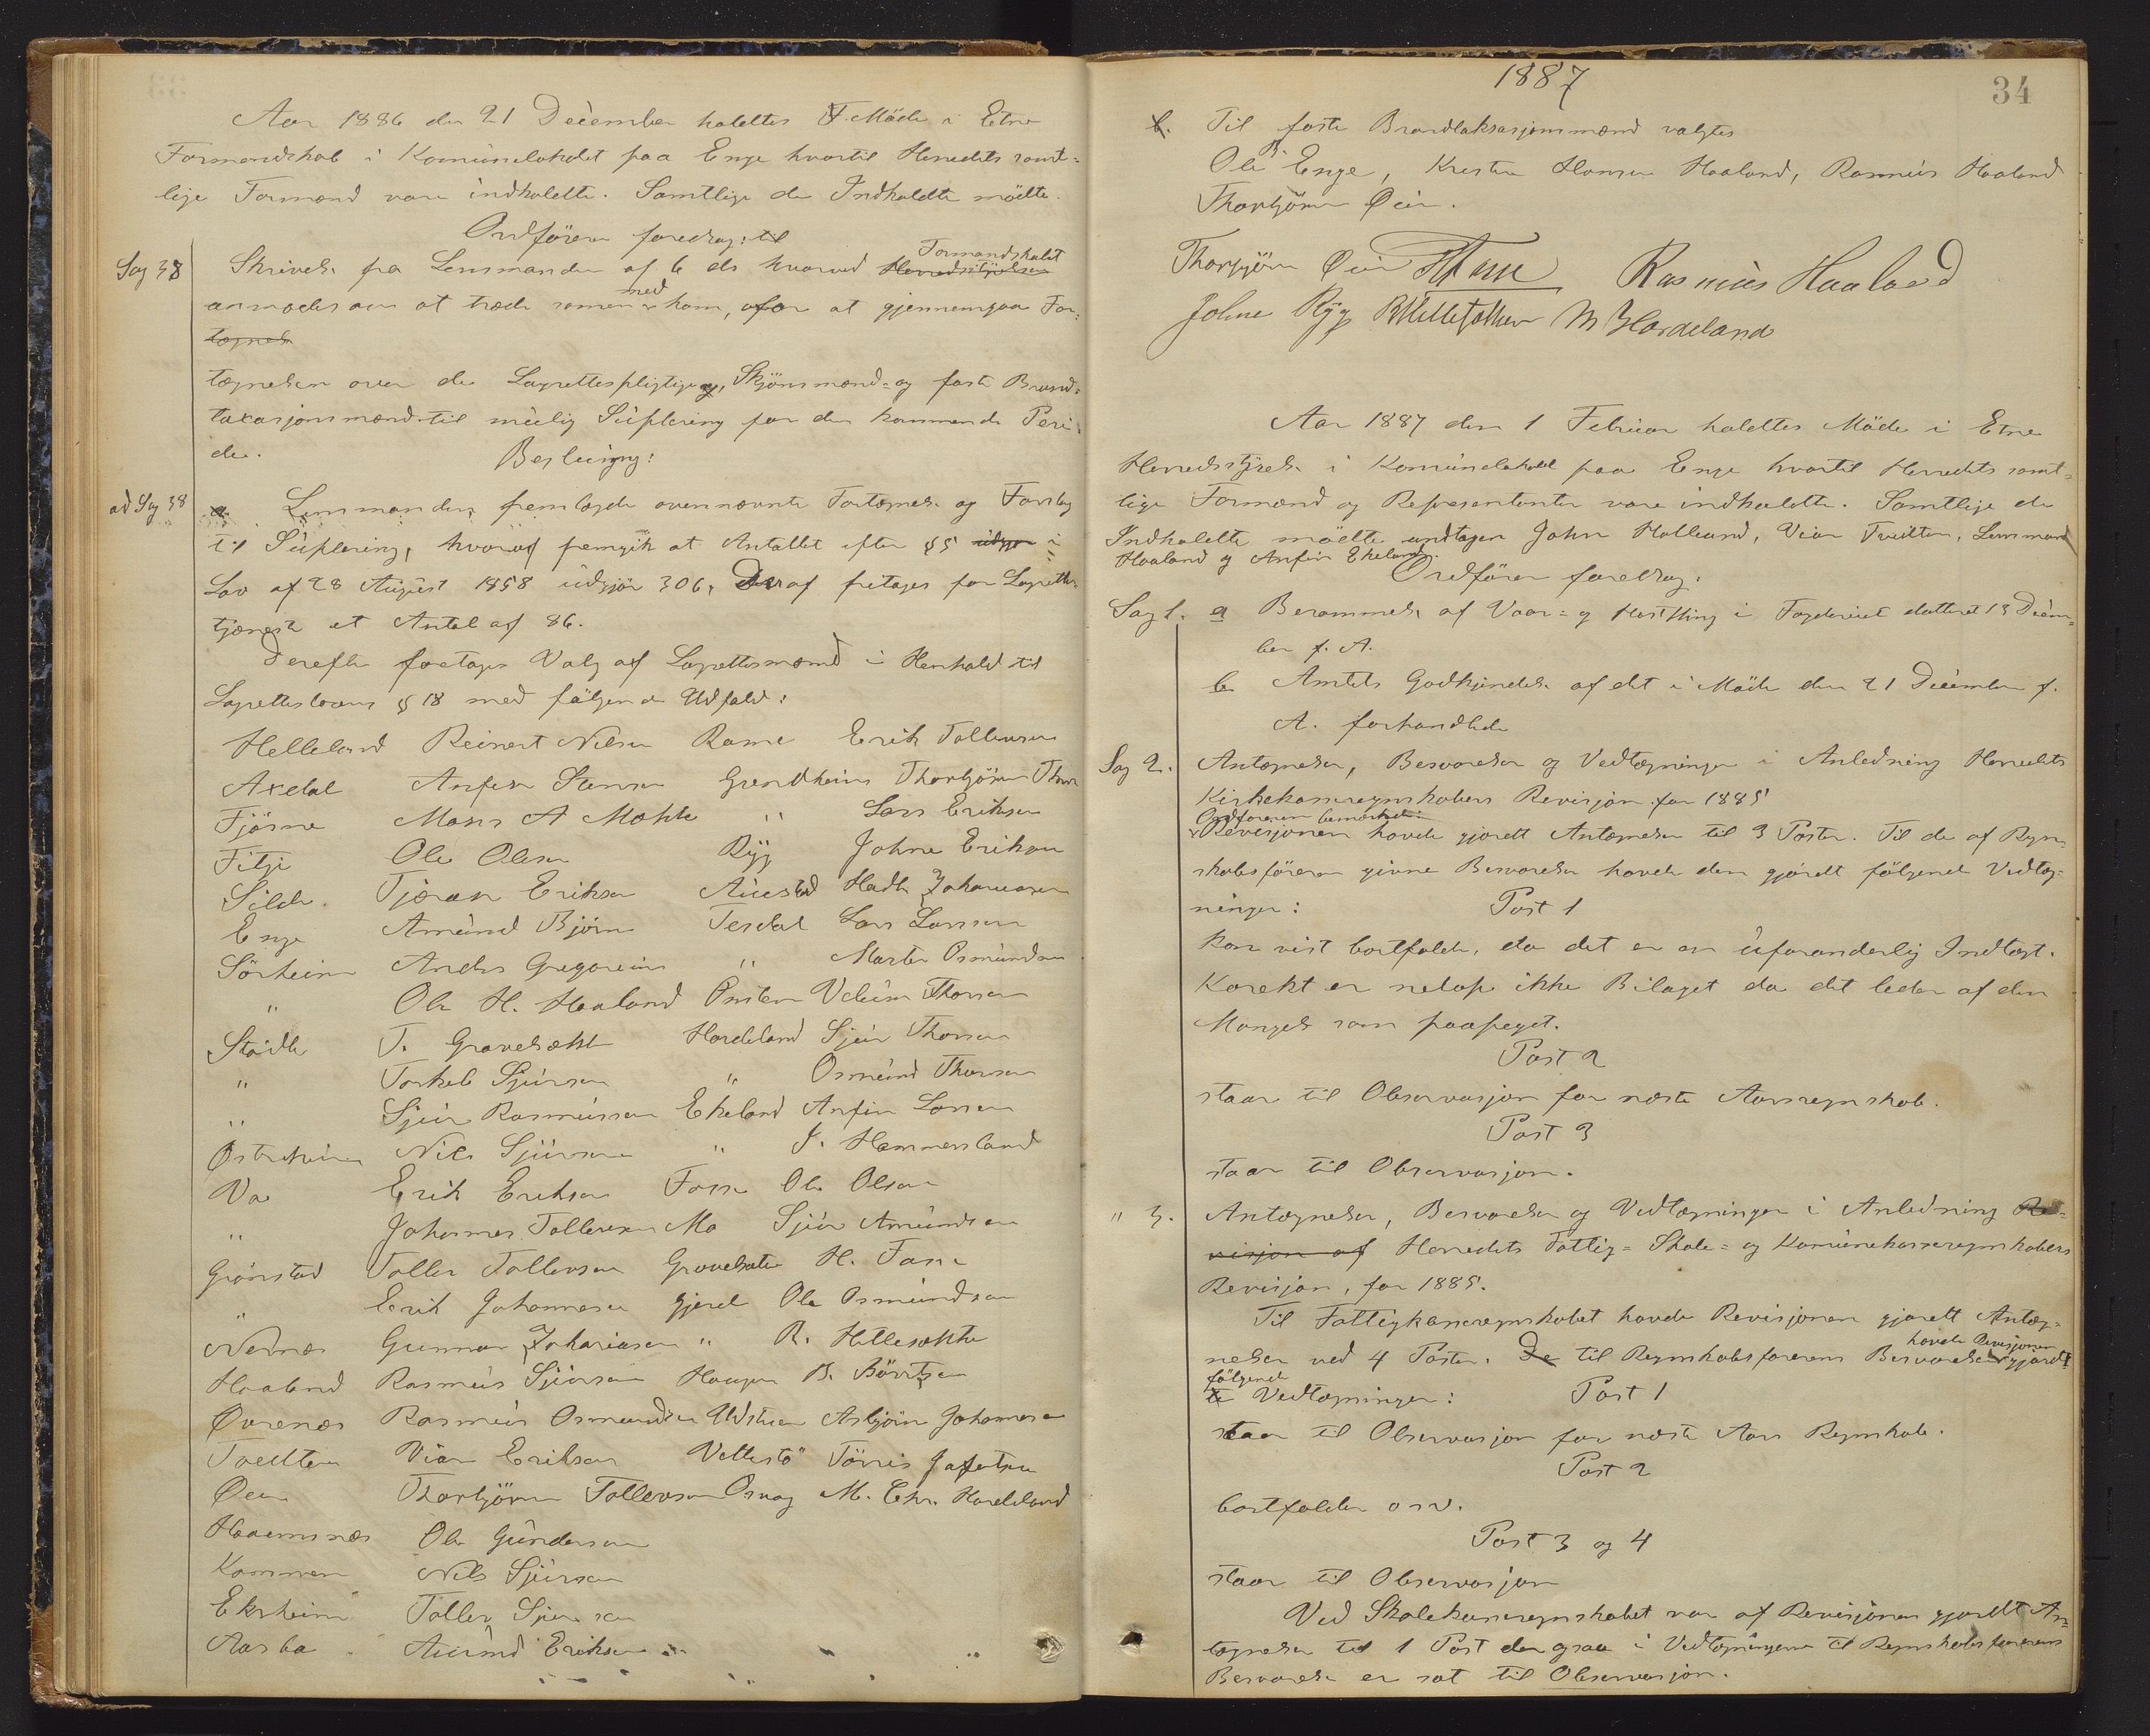 Aar 1886 den 21 December holdtes F. Möde i Etne
Formandskab i Komünelokalet paa Enge hvortil Herredets samt-
lige Formænd vare indkaldte. Samtlige de Indkaldte mödte.
Ordföreren foredrog: til
Sag 38 Skrivelse fra Lensmanden af 6 ds hvorved Herredsstÿrelsen Formandskabet
anmodes om at træde samen med ham, for at gjennemgaa For-
tegnels
tegnelsen over de Lagrettespligtige, Skjönsmænd- og faste Brand-
taxasjonsmænd til mülig Süplering for den kommende Peri-
de.
Beslutning:
ad Sag 38 a. Lensmanden fremlagde ovennævnte Fortegnelse og Forslag
til Süplering, hvoraf fremgik at Antallet efter § 5 udgjør i
Lov af 28 Aügüst 1858 üdgjör 306, Deraf fritages for Lagrette-
tjeneste et Antal af 86.
Derefter foretoges Valg af Lagrettesmænd i Henhold til
Lagretteslovens § 18 med fölgende Udfald:
Helleland Reinert Nilsen Rame Erik Tollevsen
Axdal Anfin Stensen Grindheim Thorbjörn Thor
Fjösne Mons A Mokle " Lars Eriksen
Fitje Ole Olsen Rÿg Johne Eriksen
Silde Tjeran Eriksen Aüestad Hadle Johannesen
Enge Amünd Björn Tesdal Lars Larsen
Sörheim Anders Gregoreüs " Marten Osmündsen
" Ole H. Haaland Önsten Velüm Thorsen
Stödle T. Gravelsækle Hardeland Sjür Thorsen
" Torkel Sjürsen " Osmünd Thorsen
" Sjür Rasmüssen Ekeland Anfin Larsen
Östreheim Nils Sjürsen " J. Hammersland
Va Erik Eriksen Fosse Ole Olsen
" Johannes Tollevsen Mo Sjür Amündsen
Grönstad Tollev Tollevsen Gravelsæte H. Fosse
" Erik Johannesen Gjerd Ole Osmündsen
Nernes Gunnar Zakariasen " R. Hillesækle
Haaland Rasmüs Sjürsen Haugen B. Börretzen
Øvrenæs Rasmüs Osmundsen Udstuen Asbjörn Johannesen
Tvedten Viar Eriksen Vettestö Törris Jafetsen
Øen Thorbjörn Tollevsen Osnag M. Chr. Hardeland
Haarnes Ole Gündersen
Kammen Nils Sjürsen
Ekrheim Tollev Sjürsen
Aasba Amünd Eriksen
1887
34
b. Til faste Brandtaksasjonsmænd valgtes
Ole B. Enge, Kristen Hansen Haaland, Rasmüs Haaland
Thorbjörn Øen.
Thorbjörn Øen H Fosse Rasmüs Haaland
Johne Rÿg R Hillesækken M Hardeland
Aar 1887 den 1 Febrüar holdtes Möde i Etne
Herredsstÿrelse i Komünelokalet paa Enge hvortil Herredets samt-
lige Formænd og Representanter vare indkaldte. Samtlige de
Indkaldte mödte undtagen John Helland, Viar Tvedten, Lensmand
Haaland og Anfin Ekeland.
Ordföreren foredrog:
Sag 1. a Berammelse af Vaar- og Höstthing i Fogderiet datteret 13 Decem-
ber f. A.
b Amtets Godkjendelse af det i Möde den 21 December f.
A. forhandlede
Sag 2. Antegnelser, Besvarelser og Vedtegninger i Anledning Herredets
Kirkekasseregnskabers Revisjon for 1885
Ordføreren bemærkede:
Revisjonen havde gjordt Antegnelser til 3 Poster. Til de af Regn-
skabsföreren givne Besvarelser havde den gjordt fölgende Vedteg-
ninger:
Post 1
kan vist bortfalde, da det er en üforanderlig Indtægt.
Korekt er netop ikke Bilaget da det lider af den
Mangel som paapeget.
Post 2
staar til Observasjon for næste Aarsregnskab.
Post 3
staar til Observasjon.
" 3. Antegnelser, Besvarelser og Vedtegninger i Anledning Re-
visjon af Herredets Fattig- Skole- og Komünekasseregnskabers
Revisjon, for 1885.
Til Fattigkasseregnskabet havde Revisjonen gjordt Anteg-
nelser ved 4 Poster. De til Regnskabsförerens Besvarelser havde Revisjonen gjordt
fölgende Vedtegninger:
Post 1
staar til Observasjon for næste Aars Regnskab.
Post 2
bortfalder osv.
Post 3 og 4
staar til Observasjon
Ved Skolekasseregnskabet var af Revisjonen gjordt An-
tegnelser til 1 Post der ogsaa i Vedtegningerne til Regnskabsförerens
Besvarelse er sat til Observasjon.